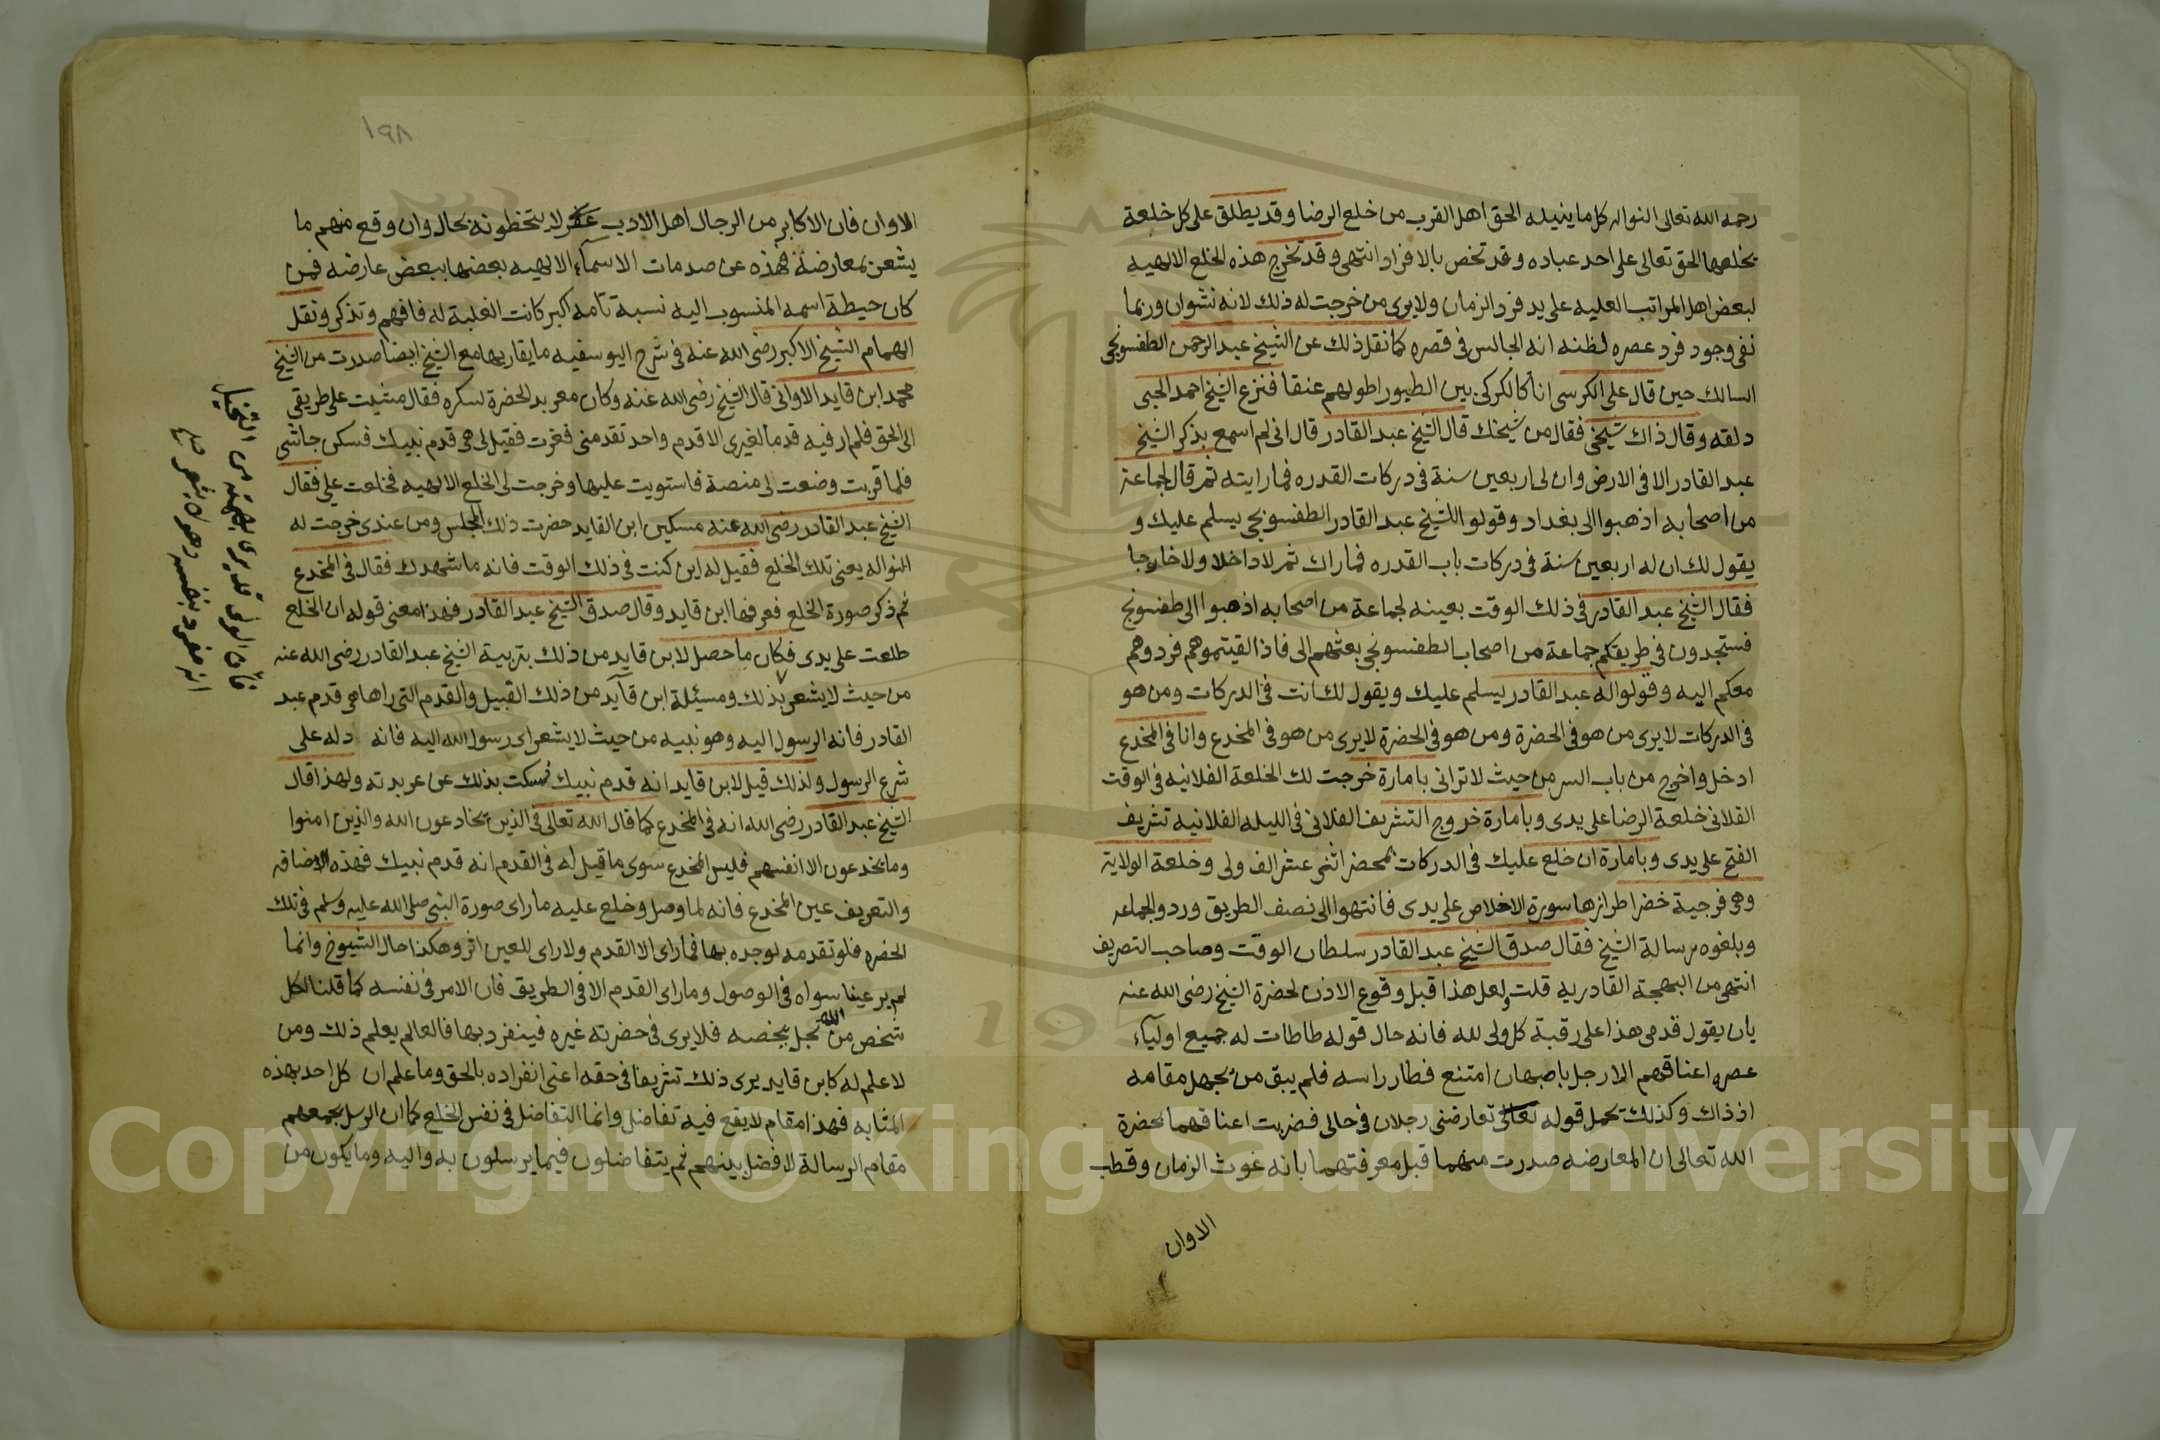 رحمه الله تعالى النواله كل ما ينيله الحق اهل القرب من خلع الرضا وقد يطلق على كل خلعة
يخلعها الحق تعالى على احد عباده وقد تخص بالافراد انتهى وقد تخرج هذه الخلع الالهيه
لبعض اهل المراتب العليه على يد فرد الزمان ولا يرى من خرجت له ذلك لانه نشوان وربما
نفى وجود فرد عصره لظنه انه الجالس في قصره كما نقل ذلك عن الشيخ عبد الرحمن الطفسونجى
السالك حين قال على الكرسى انا كالكركى بين الطيور اطولهم عنقا فنزع الشيخ احمد الجبى
دلقه وقال ذاك شيخى فقال من شيخك قال الشيخ عبد القادر قال انى لم اسمع بذكر الشيخ
عبد القادر الا في الارض وان لى اربعين سنة في دركات القدره فما رايته ثم قال لجماعة
من اصحابه اذهبوا الى بغداد وقولو اللشيخ عبد القادر الطفسونجى يسلم عليك و
يقول لك ان له اربعين سنة في دركات باب القدره فما راك ثم لا داخلا ولا خارجا
فقال الشيخ عبد القادر في ذلك الوقت بعينه لجماعة من اصحابه اذهبوا الى طفسونج
فستجدون في طريقكم جماعة من اصحاب الطفسونجى بعثهم الى فاذا لقيتموهم فردوهم
معكم اليه وقولوا له عبد القادر يسلم عليك ويقول لك انت في الدركات ومن هو
في الدركات لا يرى من هو في الحضرة ومن هو في الحضرة لا يرى من هو في المخدع وانا في المخدع
ادخل واخرج من باب السر من حيث لا ترانى بامارة خرجت لك الخلعة الفلانيه في الوقت
الفلانى خلعة الرضا على يدى وبامارة خروج التشريف الفلانى في الليله الفلانيه تشريف
الفتح على يدى وبامارة ان خلع عليك في الدركات بمحضر اثنى عشر الف ولى وخلعة الولاية
وهى فرجية خضرا طرازها سورة الاخلاص على يدى فانتهوا الى نصف الطريق وردو الجماعه
وبلغوه رسالة الشيخ فقال صدق الشيخ عبد القادر سلطان الوقت وصاحب التصريف
انتهى من البهجة القادريه قلت ولعل هذا قبل وقوع الاذن لحضرة الشيخ رضى الله عنه
بان يقول قدمى هذا على رقبة كل ولى لله فانه حال قوله طاطات له جميع اولياء
عصره اعناقهم الا رجل باصبهان امتنع فطار راسه فلم يبق من يجهل مقامه
اذ ذاك وكذلك يحمل قوله تعالى تعارضنى رجلان في حالى فضربت اعناقهما بحضرة
الله تعالى ان المعارضه صدرت منهما قبل معرفتهما بانه غوث الزمان وقطب
الاوان
١٩٨
الاوان فان الاكابر من الرجال اهل الادب لا يتخطونه بحال وان وقع منهم ما
يشعر بمعارضة فهذه عن صدمات الاسماء الالهيه بعضها ببعض عارضه فمن
كان حيطة اسمه المنسوب اليه نسبة تامه اكبر كانت الغلبة له فافهم وتذكر ونقل
الهمام الشيخ الاكبر رضى الله عنه في شرح اليوسفيه ما يقاربها مع الشيخ ايضا صدرت من الشيخ
محمد ابن قايد الاوانى قال الشيخ رضى الله عنه وكان معربد الحضرة لسكره فقال مشيت على طريقى
الى الحق فلم ار فيه قدما لغيرى الا قدم واحد تقدمنى فغرت فقيل لى هى قدم نبيك فسكن جاشى
فلما قربت وضعت لى منصة فاستويت عليها وخرجت لى الخلع الالهيه فخلعت على فقال
الشيخ عبد القادر رضى الله عنه مسكين ابن القايد حضرت ذلك المجلس ومن عندى خرجت له
النواله يعنى تلك الخلع فقيل له اين كنت في ذلك الوقت فانه ما شهدك فقال في المخدع
ثم ذكر صورة الخلع فعرفها ابن قايد وقال صدق الشيخ عبد القادر فهذا معنى قوله ان الخلع
طلعت على يدى فكان ما حصل لابن قايد من ذلك بتربية الشيخ عبد القادر رضى الله عنه
من حيث لا يشعر بذلك ومسئلة ابن قآيد من ذلك القبيل والقدم التى راها هى قدم عبد
القادر فانه الرسول اليه وهو نبيه من حيث لا يشعر اى رسول الله اليه فانه دله على
شرع الرسول ولذلك قيل لابن قايد انه قدم نبيك فمسكت بذلك عن عربدته ولهذا قال
الشيخ عبد القادر رضى الله انه في المخدع كما قال الله تعالى في الذين يخادعون الله والذين امنوا
وما يخدعون الا انفسهم فليس المخدع سوى ما قيل له في القدم انه قدم نبيك فهذه الاضافه
والتعريف عين المخدع فانه لما وصل وخلع عليه ما راى صورة النبى صلى الله عليه وسلم في تلك
الحضره فلو تقدمه لوجده بها فما راى الا القدم ولا راى للعين اثر وهكذا حال الشيوخ وانما
لم ير عينا سواه في الوصول وما راى القدم الا في الطريق فان الامر في نفسه كما قلنا لكل
شخص من الله تجل يخصه فلا يرى في حضرته غيره فينفرد بها فالعالم يعلم ذلك ومن
لا علم له كابن قايد يرى ذلك تشريفا في حقه اعنى انفراده بالحق وما علم ان كل احد بهذه
المثابه فهذا مقام لا يقع فيه تفاضل وانما التفاضل في نفس الخلع كما ان الرسل بجمعهم
مقام الرسالة لا فضل بينهم ثم يتفاضلون فيما يرسلون به واليه وما يكون من
Copyright © King Saud University